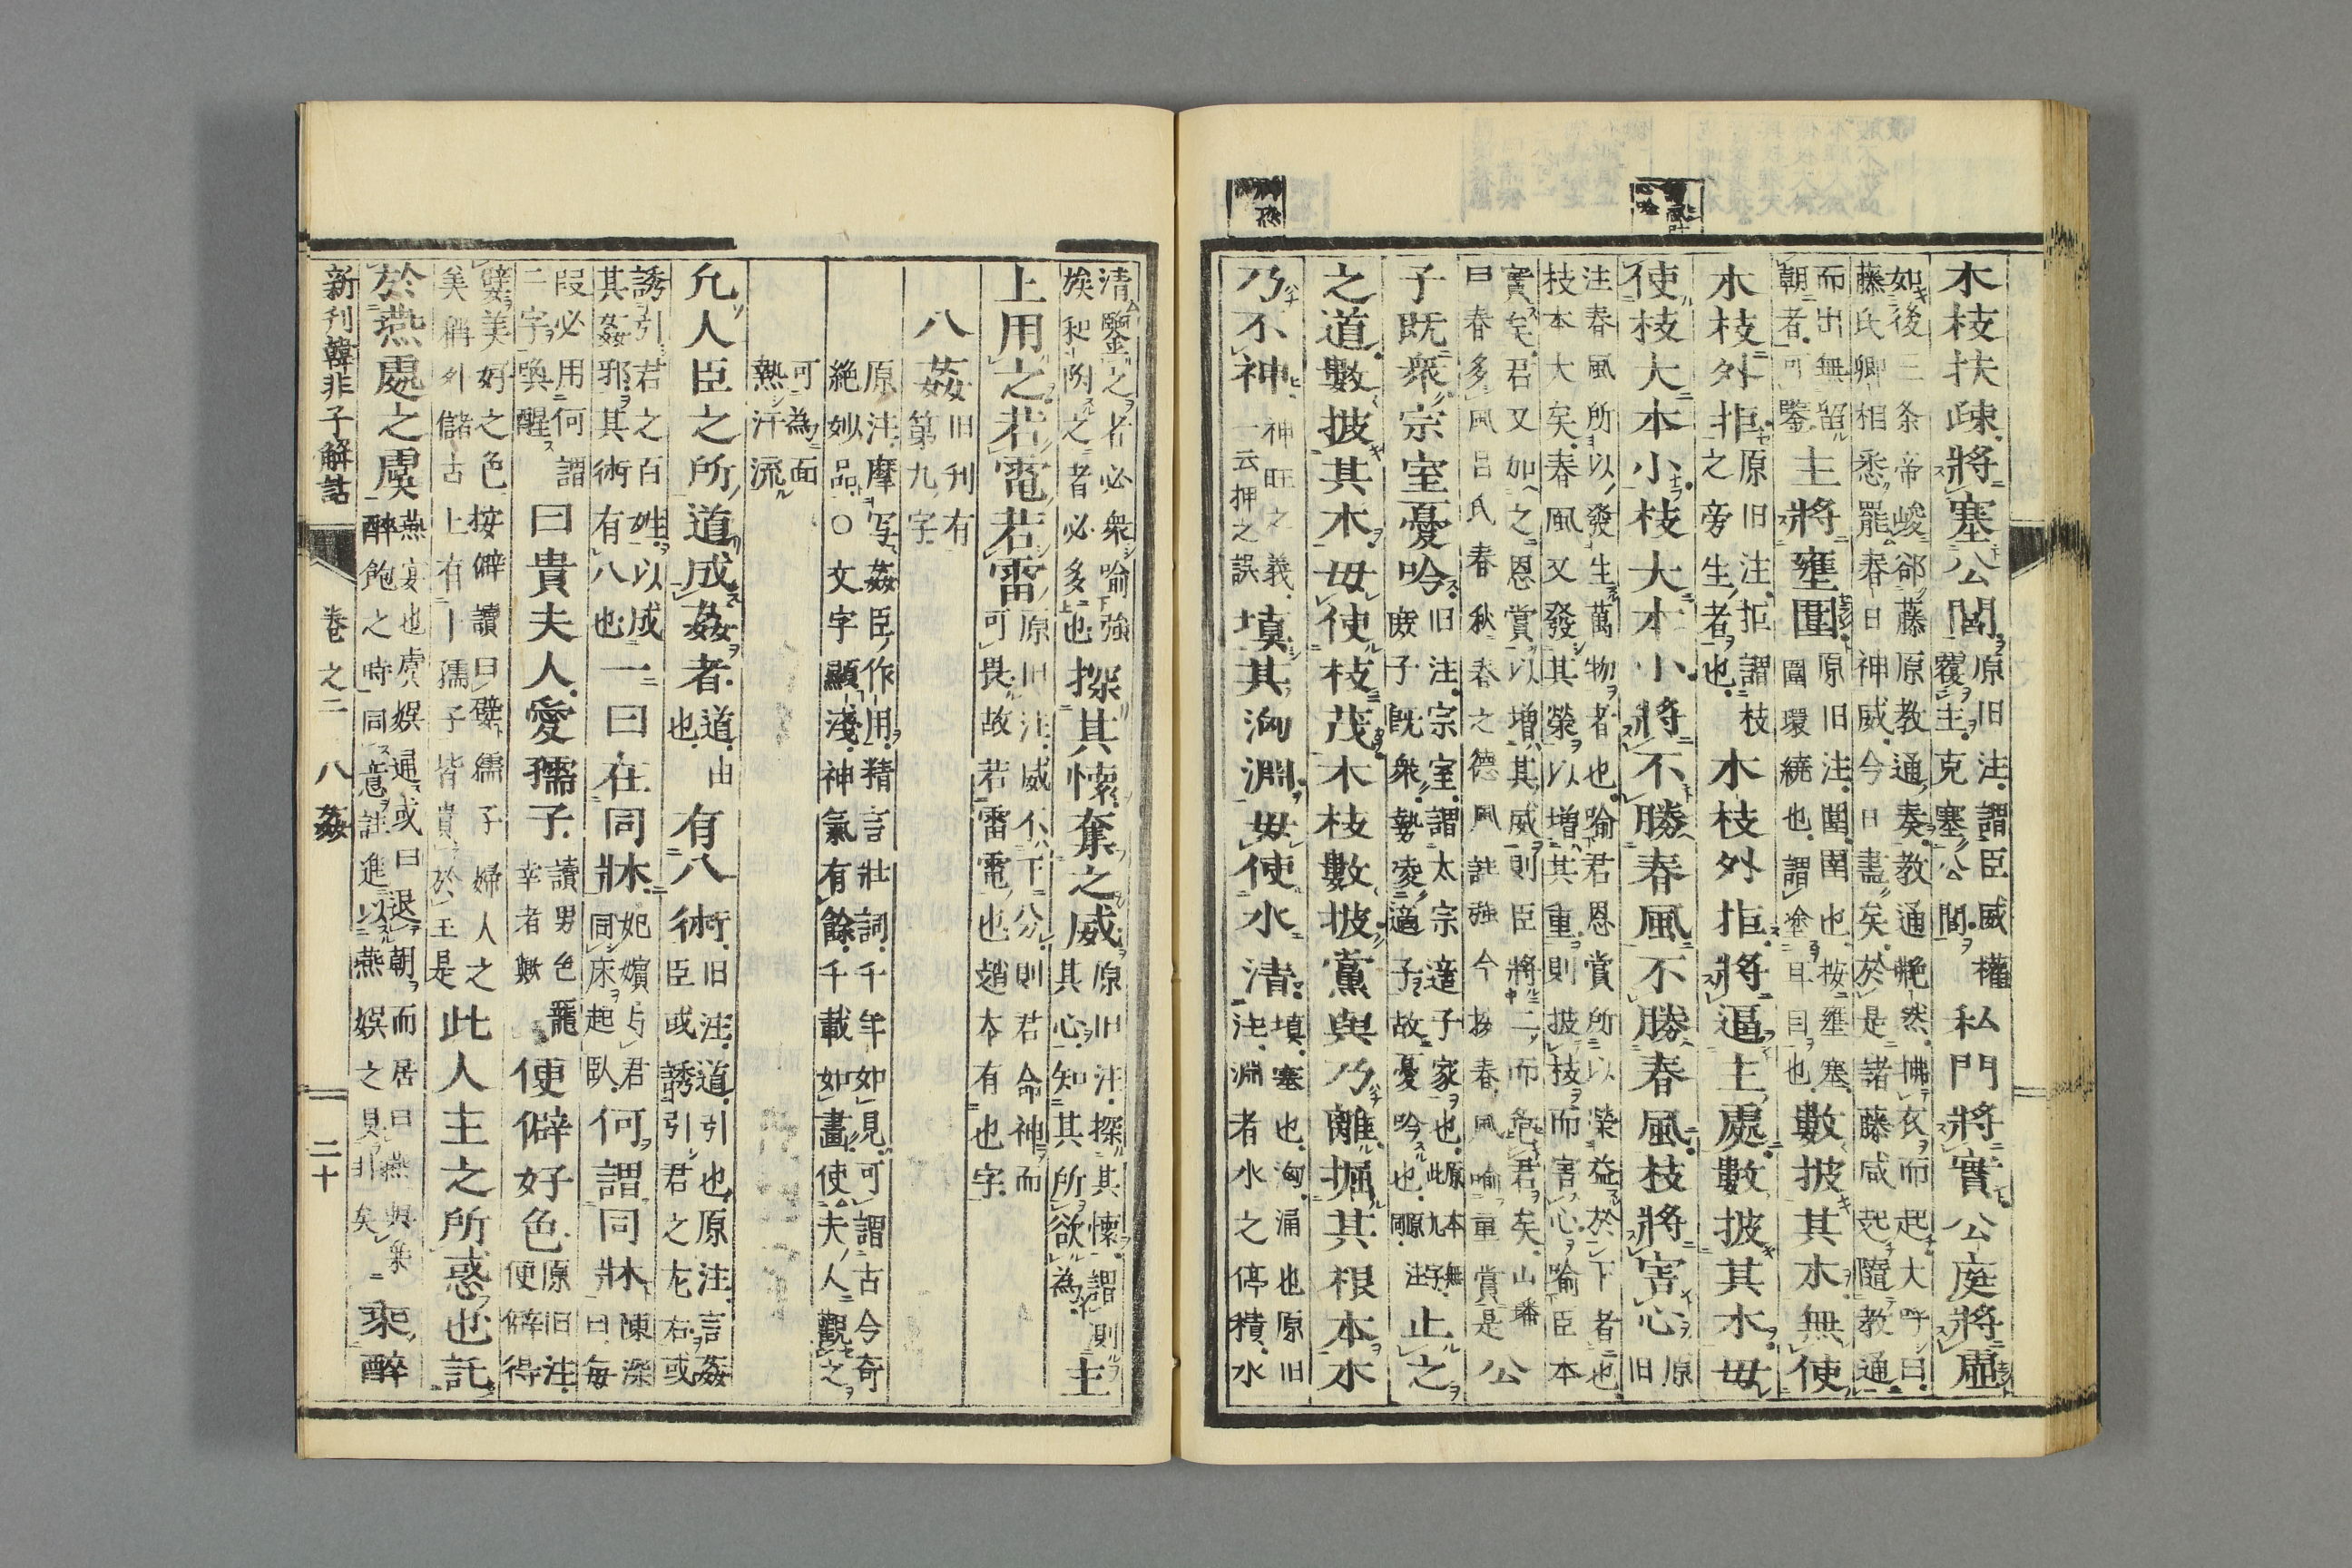 木枝扶疎將塞公閭原旧注謂臣威權覆主克塞公閭私門將實公庭將虛
如後三条帝峻卻藤原教通奏教通艴然拂衣而起大呼曰
藤氏卿相悉罷春日神威今日盡矣於是諸藤咸起隨教通
而出無留朝者可鑒主將壅圍原旧注圍圉也按壅塞圍環繞也謂塗耳目也數披其木無使
木枝外拒原旧注拒謂枝之旁生者也木枝外拒將逼主處數披其木毋
使枝大本小枝大本小將不勝春風不勝春風枝將害心原旧
注春風所以發生萬物者也喻君恩賞所以榮益於下者也
枝本大矣春風又發其榮以增其重則披枝而害心喻臣本
實矣君又如之恩賞以增其威則臣將二而危君矣山璠
曰春多風呂氏春秋春之德風註強今按春風喻重賞是公
子既衆宗室憂吟旧注宗室謂太宗適子家也原本無此九字庶子既衆勢凌適子故憂吟也原注同止之
之道數披其木毋使枝茂木枝數披黨與乃離掘其根本木
乃不神神旺之義一云押之誤填其洶淵毋使水清填塞也洶涌也原旧注淵者水之停積水
清鑒之者必衆喻強埃和汋之者必多上也探其懷奪之威原旧注探其懷謂則其心知其所欲為主
上用之若電若雷原旧注威不下分則君命神而可畏故若雷電也趙本有也字
八姦旧刊有第九字
原注摩写姦臣作用精言壯詞千年如見可謂古今奇
絶妙品○文字顯淺神氣有餘千載如畫使夫人觀之
可為面熱汗流
允人臣之所道成姦者道由也有八術旧注道引也原注言姦臣或誘引君之左右或
誘引君之百姓以成其姦邪其術有八也一曰在同牀妃嬪与君同床起臥何謂同牀陳深曰毎
段必用何謂二字喚醒曰貴夫人愛孺子讀男色寵幸者歟便僻好色原旧注便僻得
嬖美好之色按僻讀曰嬖孺子婦人之美稱外儲古上有十孺子皆貴於王是此人主之所惑也託
於燕處之虞燕宴也虞娯通或曰退朝而居曰燕與樂醉飽之時同意註進以燕娯之見非矣乘醉
新刊韓非子解詁 卷之二 八姦 二十